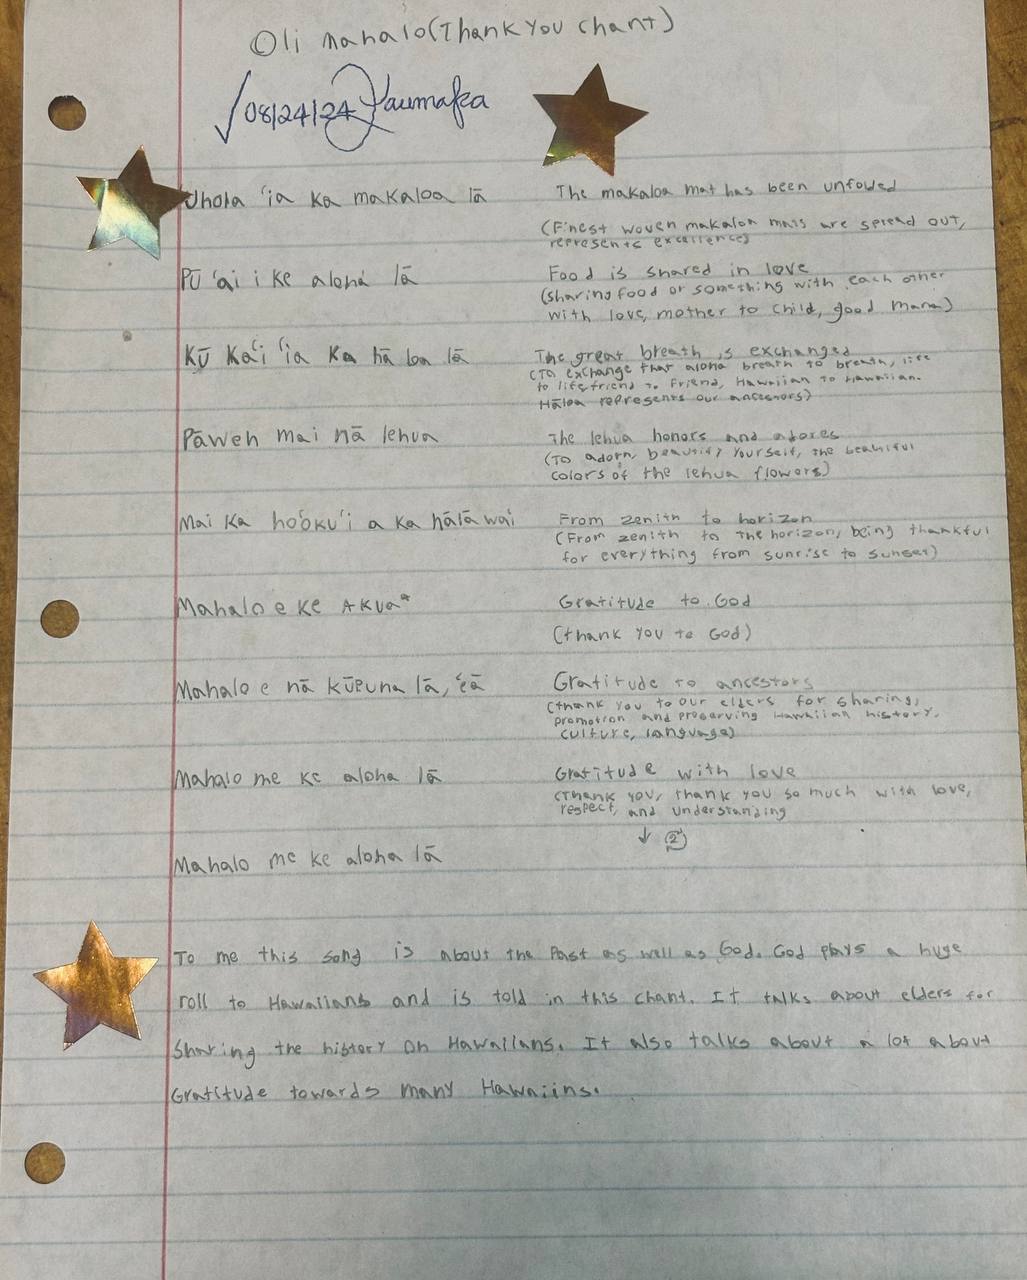 Oli mahalo (Thank You chant)
08/24/24 Kaumaka
Uhola ʻia ka makaloa lā
The makaloa mat has been unfolded
(Finest woven makaloa mats are spread out,
represents excellence)
Pū ʻai i ke aloha lā
Food is shared in love
(sharing food or something with each other
with love, mother to child, good mana)
Kū Kaʻi ʻia Ka hā loa lā
The great breath is exchanged
(To exchange that aloha breath to breath, life
to life friend to Friend, Hawaiian to Hawaiian.
Hāloa represents our ancestors)
Pāweh mai nā lehua
The lehua honors and adores
(To adorn, beautify yourself, the beautiful
colors of the lehua flowers)
Mai Ka hoʻokuʻi a ka hālāwai
From zenith to horizon
(From zenith to the horizon, being thankful
for everything from sunrise to sunset)
Mahalo e Ke AKua*
Gratitude to God
(thank you to God)
Mahalo e nā kūpuna lā, ʻeā
Gratitude to ancestors
(thank you to our elders for sharing,
promotion and preserving Hawaiian history,
culture, language)
Mahalo me ke aloha lā
Gratitude with love
(Thank you, thank you so much with love,
respect, and understanding
↓ 2
Mahalo me ke aloha lā
To me this song is about the Past as well as God. God plays a huge
roll to Hawaiians and is told in this chant. It talks about elders for
Sharing the history on Hawaiians. It also talks about a lot about
Gratitude towards many Hawaiins.